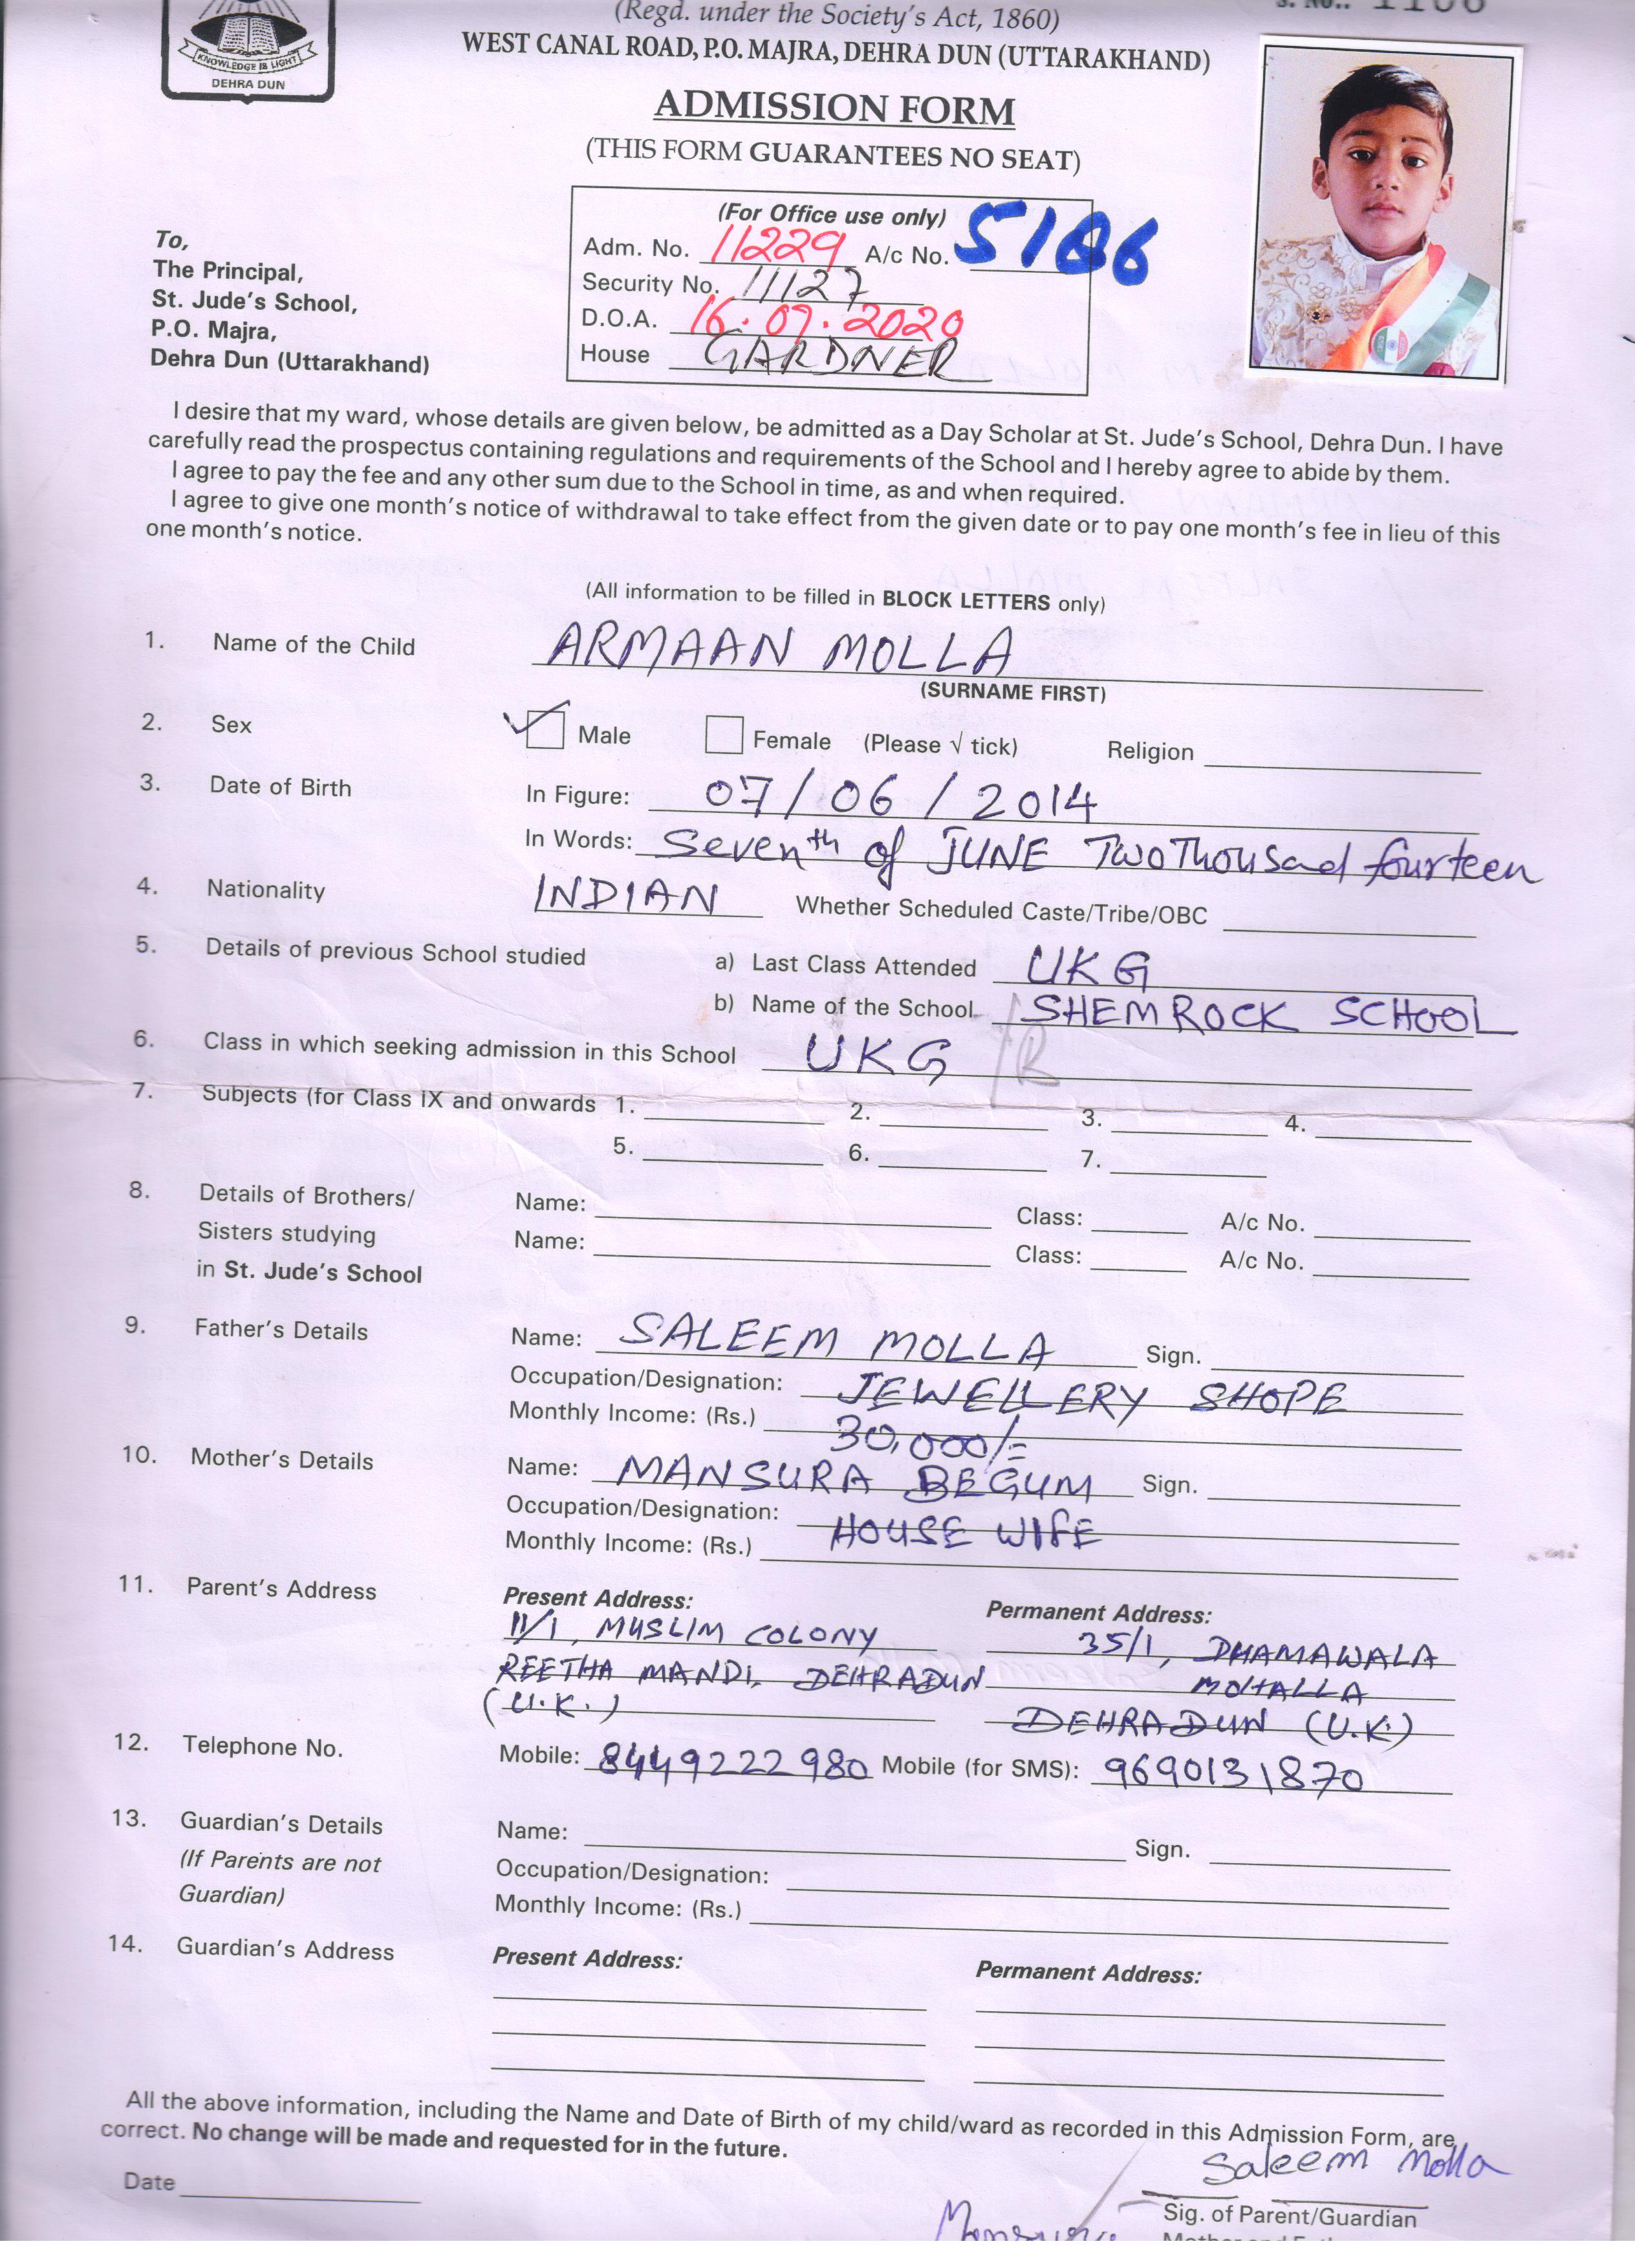 (Regd. under the Society's Act, 1860)
WEST CANAL ROAD, P.O. MAJRA, DEHRA DUN (UTTARAKHAND)
KNOWLEDGE IS LIGHT
DEHRA DUN
ADMISSION FORM
(THIS FORM GUARANTEES NO SEAT)
(For Office use only)
Adm. No. 11229 A/c No. 5186
Security No. 11127
D.O.A. 16.07.2020
House GARDNER
To,
The Principal,
St. Jude's School,
P.O. Majra,
Dehra Dun (Uttarakhand)
I desire that my ward, whose details are given below, be admitted as a Day Scholar at St. Jude's School, Dehra Dun. I have
carefully read the prospectus containing regulations and requirements of the School and I hereby agree to abide by them.
I agree to pay the fee and any other sum due to the School in time, as and when required.
I agree to give one month's notice of withdrawal to take effect from the given date or to pay one month's fee in lieu of this
one month's notice.
(All information to be filled in BLOCK LETTERS only)
1. Name of the Child ARMAAN MOLLA
(SURNAME FIRST)
2. Sex Male Female (Please √ tick) Religion
3. Date of Birth In Figure: 07/06/2014
In Words: Seventh of JUNE Two Thousad fourteen
4. Nationality INDIAN Whether Scheduled Caste/Tribe/OBC
5. Details of previous School studied a) Last Class Attended UKG
b) Name of the School SHEMROCK SCHOOL
6. Class in which seeking admission in this School UKG /R
7. Subjects (for Class IX and onwards 1. 2. 3. 4.
5. 6. 7.
8. Details of Brothers/ Name: Class: A/c No.
Sisters studying Name: Class: A/c No.
in St. Jude's School
9. Father's Details Name: SALEEM MOLLA Sign.
Occupation/Designation: JEWELLERY SHOPE
Monthly Income: (Rs.) 30,000/=
10. Mother's Details Name: MANSURA BEGUM Sign.
Occupation/Designation: HOUSE WIFE
Monthly Income: (Rs.)
11. Parent's Address Present Address: Permanent Address:
11/1, MUSLIM COLONY 35/1, DHAMAWALA
REETHA MANDI, DEHRADUN MOHALLA
(U.K.) DEHRADUN (U.K.)
12. Telephone No. Mobile: 8449222980 Mobile (for SMS): 9690131870
13. Guardian's Details Name: Sign.
(If Parents are not Occupation/Designation:
Guardian) Monthly Income: (Rs.)
14. Guardian's Address Present Address: Permanent Address:
All the above information, including the Name and Date of Birth of my child/ward as recorded in this Admission Form, are
correct. No change will be made and requested for in the future.
Saleem Molla
Date Sig. of Parent/Guardian